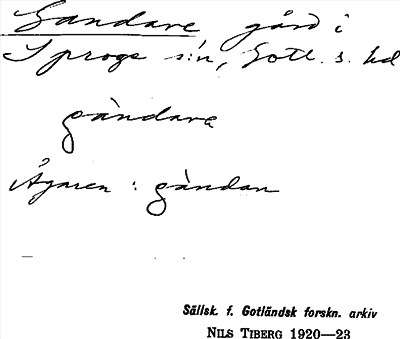 Gandare gård i
Sproge s:n, Gotl. s. hd
gàndara
Ägaren : gàndan
Sällsk. f. Gotländsk forskn. arkiv
NILS TIBERG 1920—23